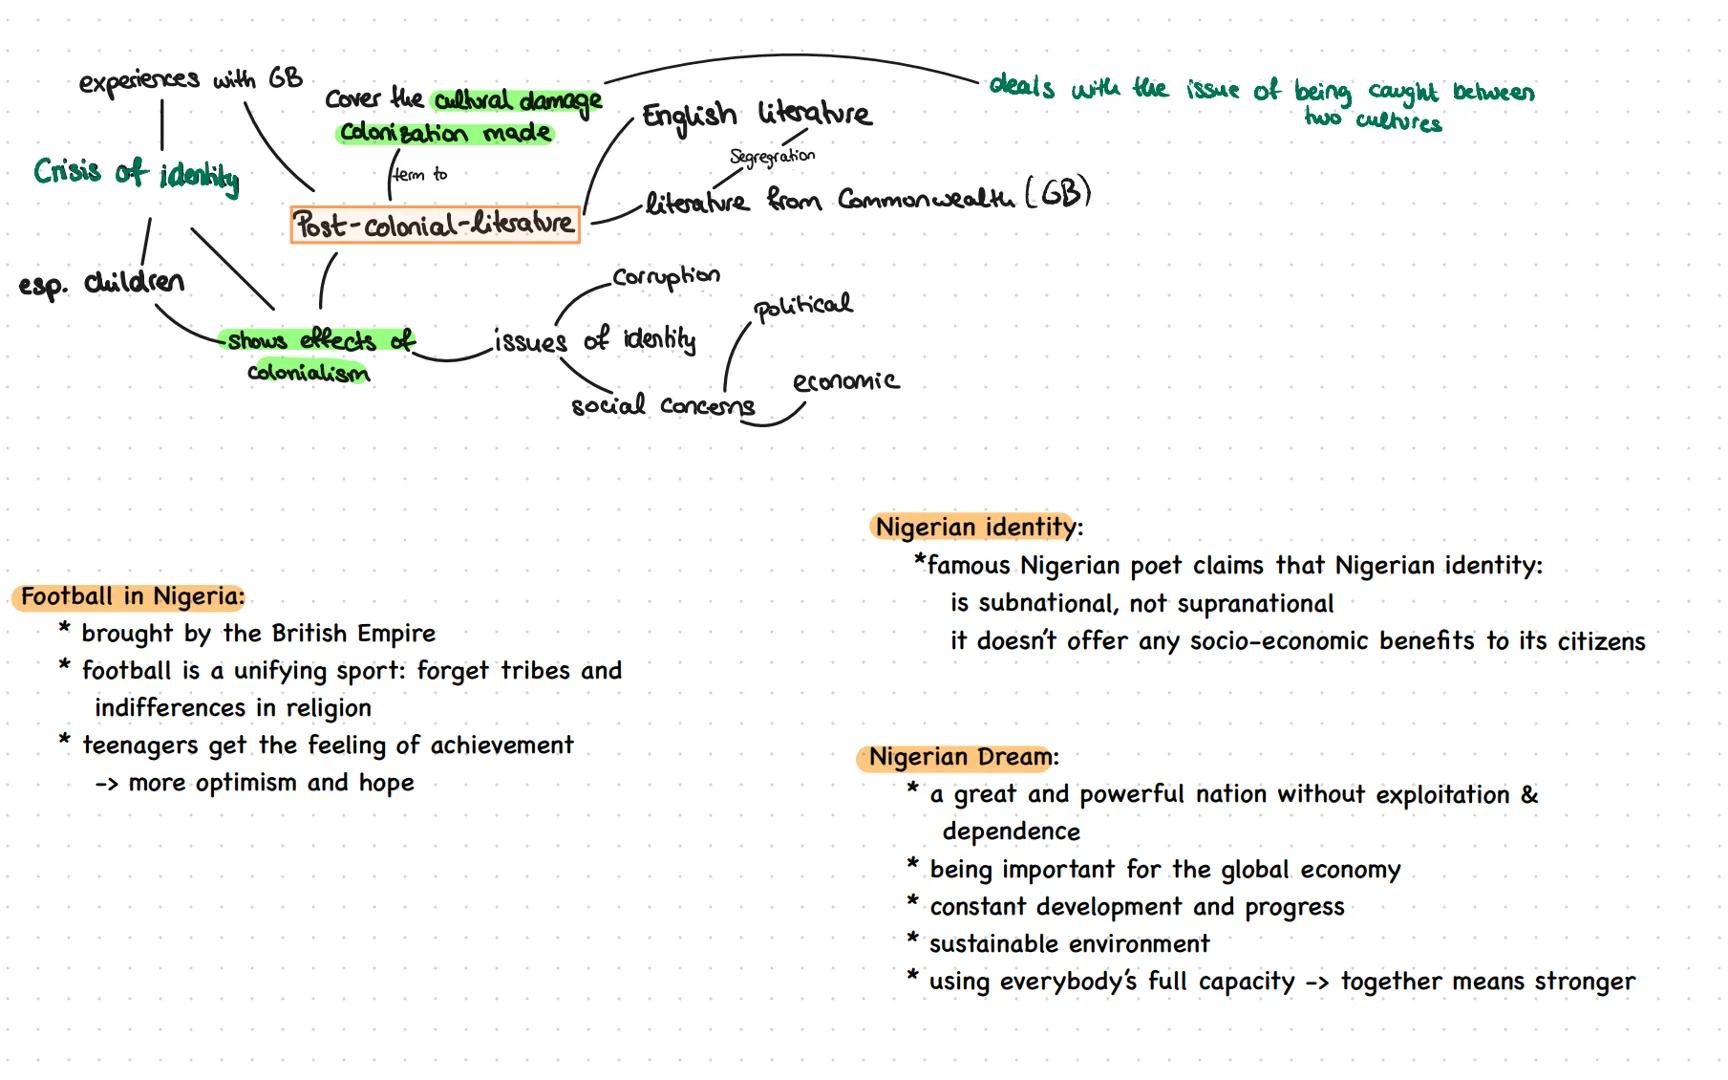 experiences with GB
Cover the cultural damage
Colonization made
term to
deals with the issue of being caught between
two cultures
English literature
Segregration
literature from Commonwealth (GB)
Crisis of identity
Post-colonial-literature
esp. children
shows effects of
colonialism
issues of identity
Corruption
political
economic
social concerns
Football in Nigeria:
* brought by the British Empire
* football is a unifying sport: forget tribes and
indifferences in religion
* teenagers get the feeling of achievement
-> more optimism and hope
Nigerian identity:
*famous Nigerian poet claims that Nigerian identity:
is subnational, not supranational
it doesn't offer any socio-economic benefits to its citizens
Nigerian Dream:
* a great and powerful nation without exploitation &
dependence
* being important for the global economy
* constant development and progress
* sustainable environment
* using everybody's full capacity -> together means stronger